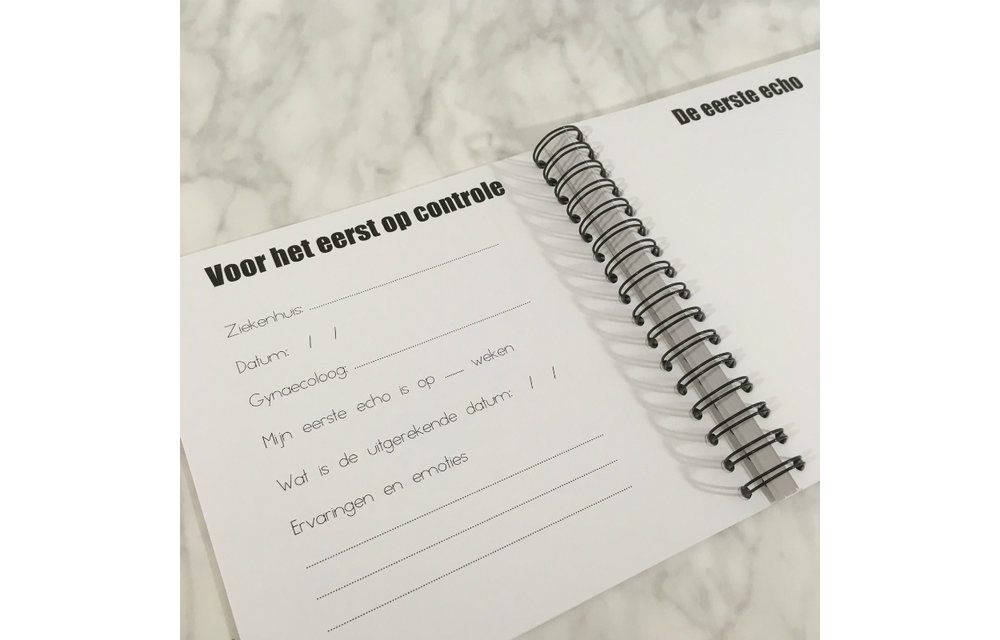 Voor het eerst op controle
Ziekenhuis:
Datum: / /
Gynaecoloog:
Mijn eerste echo is op __ weken
Wat is de uitgerekende datum: / /
Ervaringen en emoties
De eerste echo